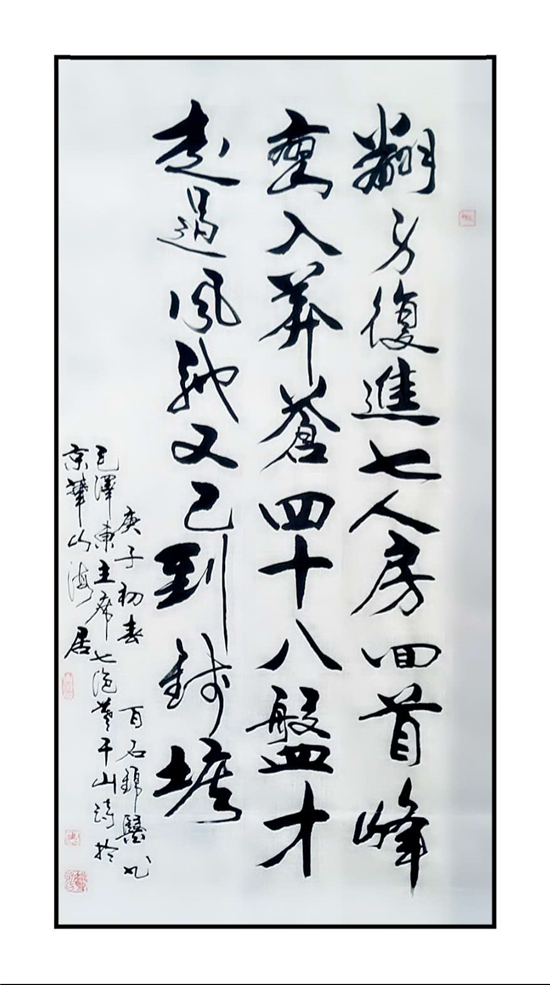 翻身復進七人房回首峰
巒入莽蒼四十八盤才
走過風馳又已到錢塘
庚子初春 百石錦
毛澤東主席七絕莫干山詩於
京華山海居